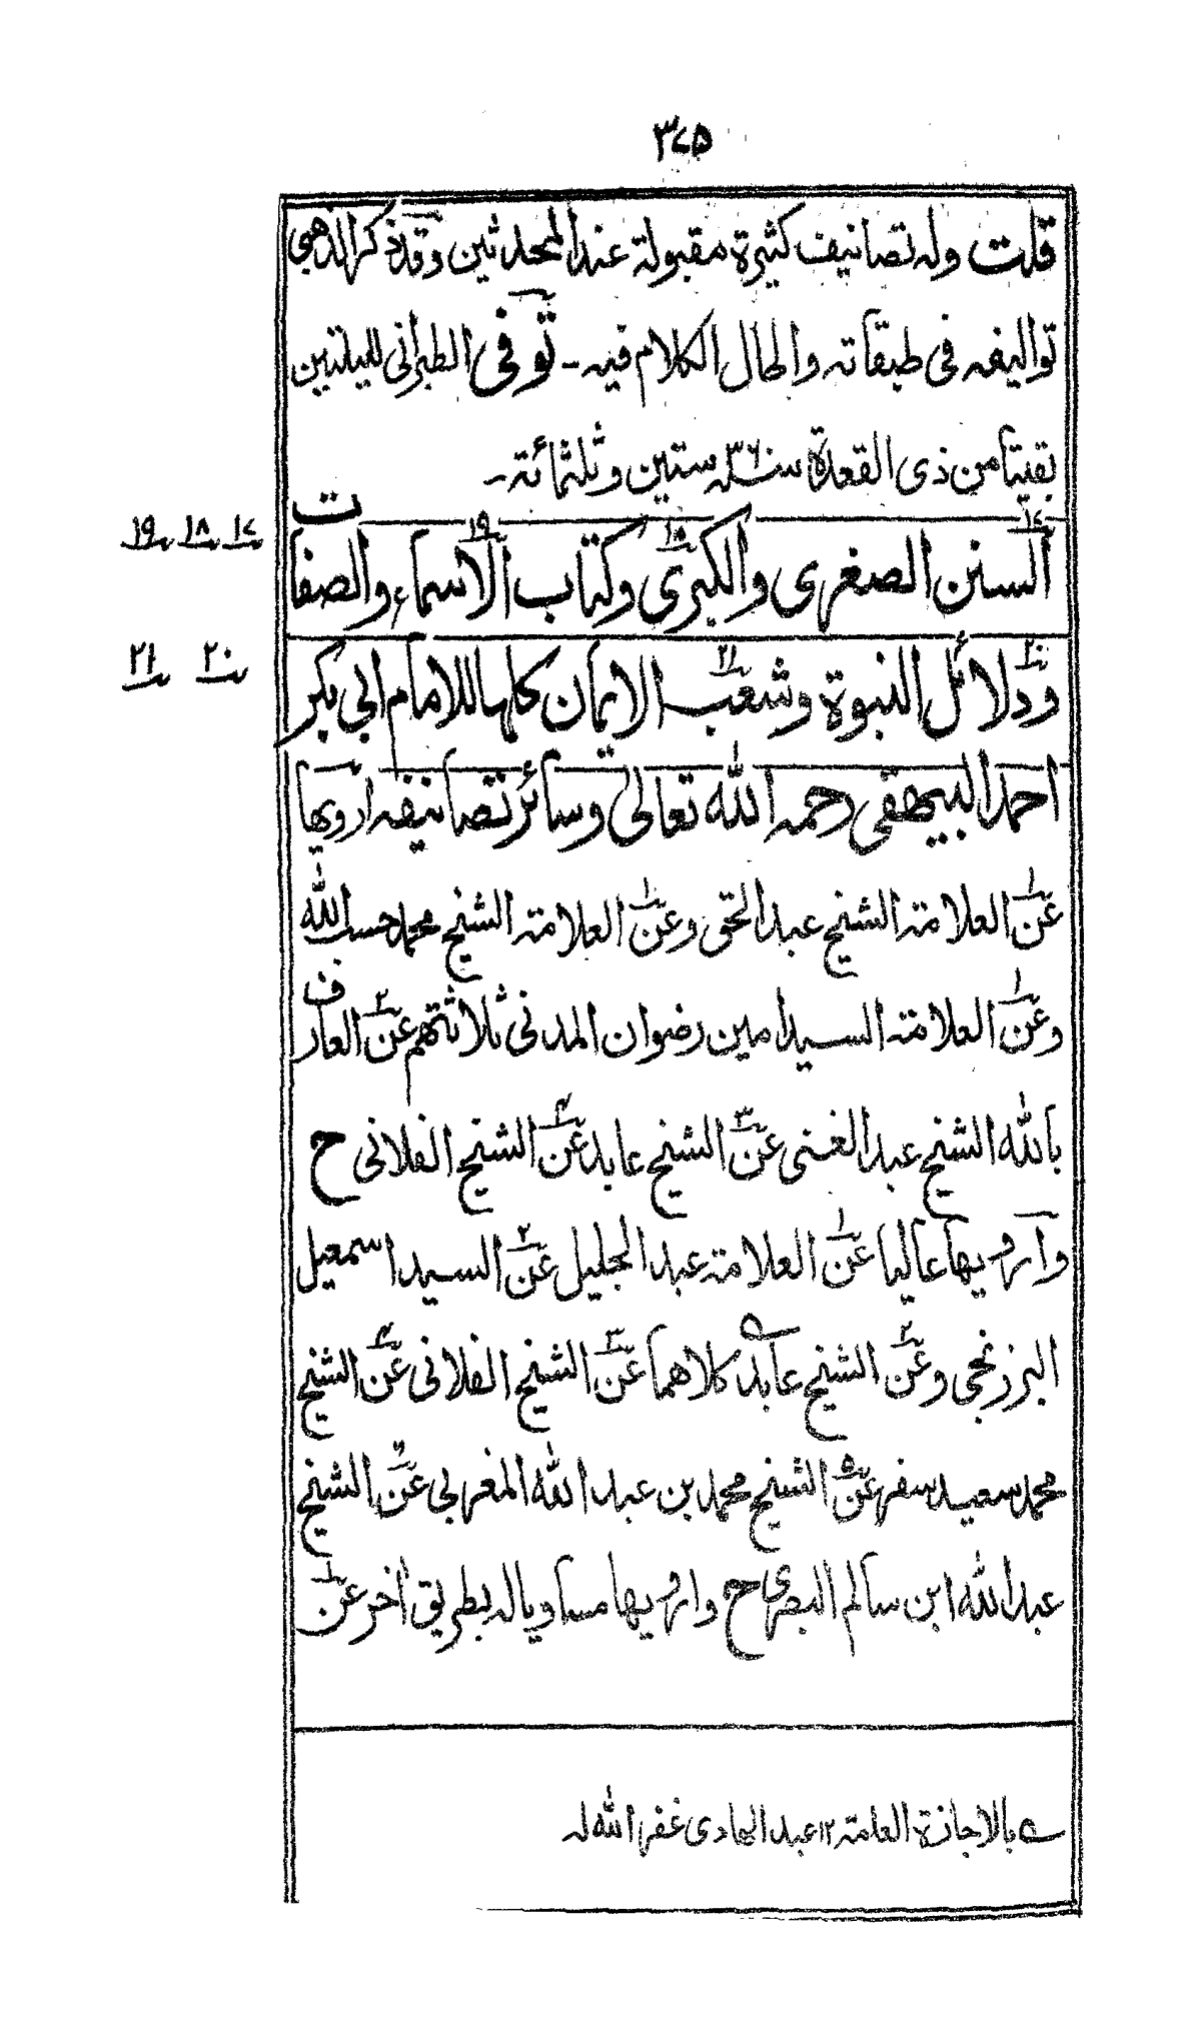 ۳۷۵
قلت وله تصانيف كثيرة مقبولة عند المحدثين وقد ذكر الذهبي
تواليفه في طبقاته واطال الكلام فيه ـ توفي الطبراني لليلتين
بقيتا من ذي القعدة سنة ۳٦۰ ستين وثلثمائة ـ
السنن الصغرى والكبرى وكتاب الاسماء والصفات
۱۷ ۱۸ ۱۹
ودلائل النبوة وشعب الايمان كلها للامام ابي بكر
۲۰ ۲۱
احمد البيهقي رحمه الله تعالى وسائر تصانيفه ارويها
عن العلامة الشيخ عبد الحق وعن العلامة الشيخ محمد حسب الله
وعن العلامة السيد امين رضوان المدني ثلاثتهم عن العارف
بالله الشيخ عبد الغني عن الشيخ عابد عن الشيخ الفلاني ح
وارويها عاليا عن العلامة عبد الجليل عن السيد اسمعيل
البرزنجي وعن الشيخ عابد كلاهما عن الشيخ الفلاني عن الشيخ
محمد سعيد سفر عن الشيخ محمد بن عبد الله المغربي عن الشيخ
عبد الله ابن سالم البصري ح وارويها مساويا له بطريق اخر عن
ے بالاجازة العامة ۱۲ عبد الهادى غفر الله له